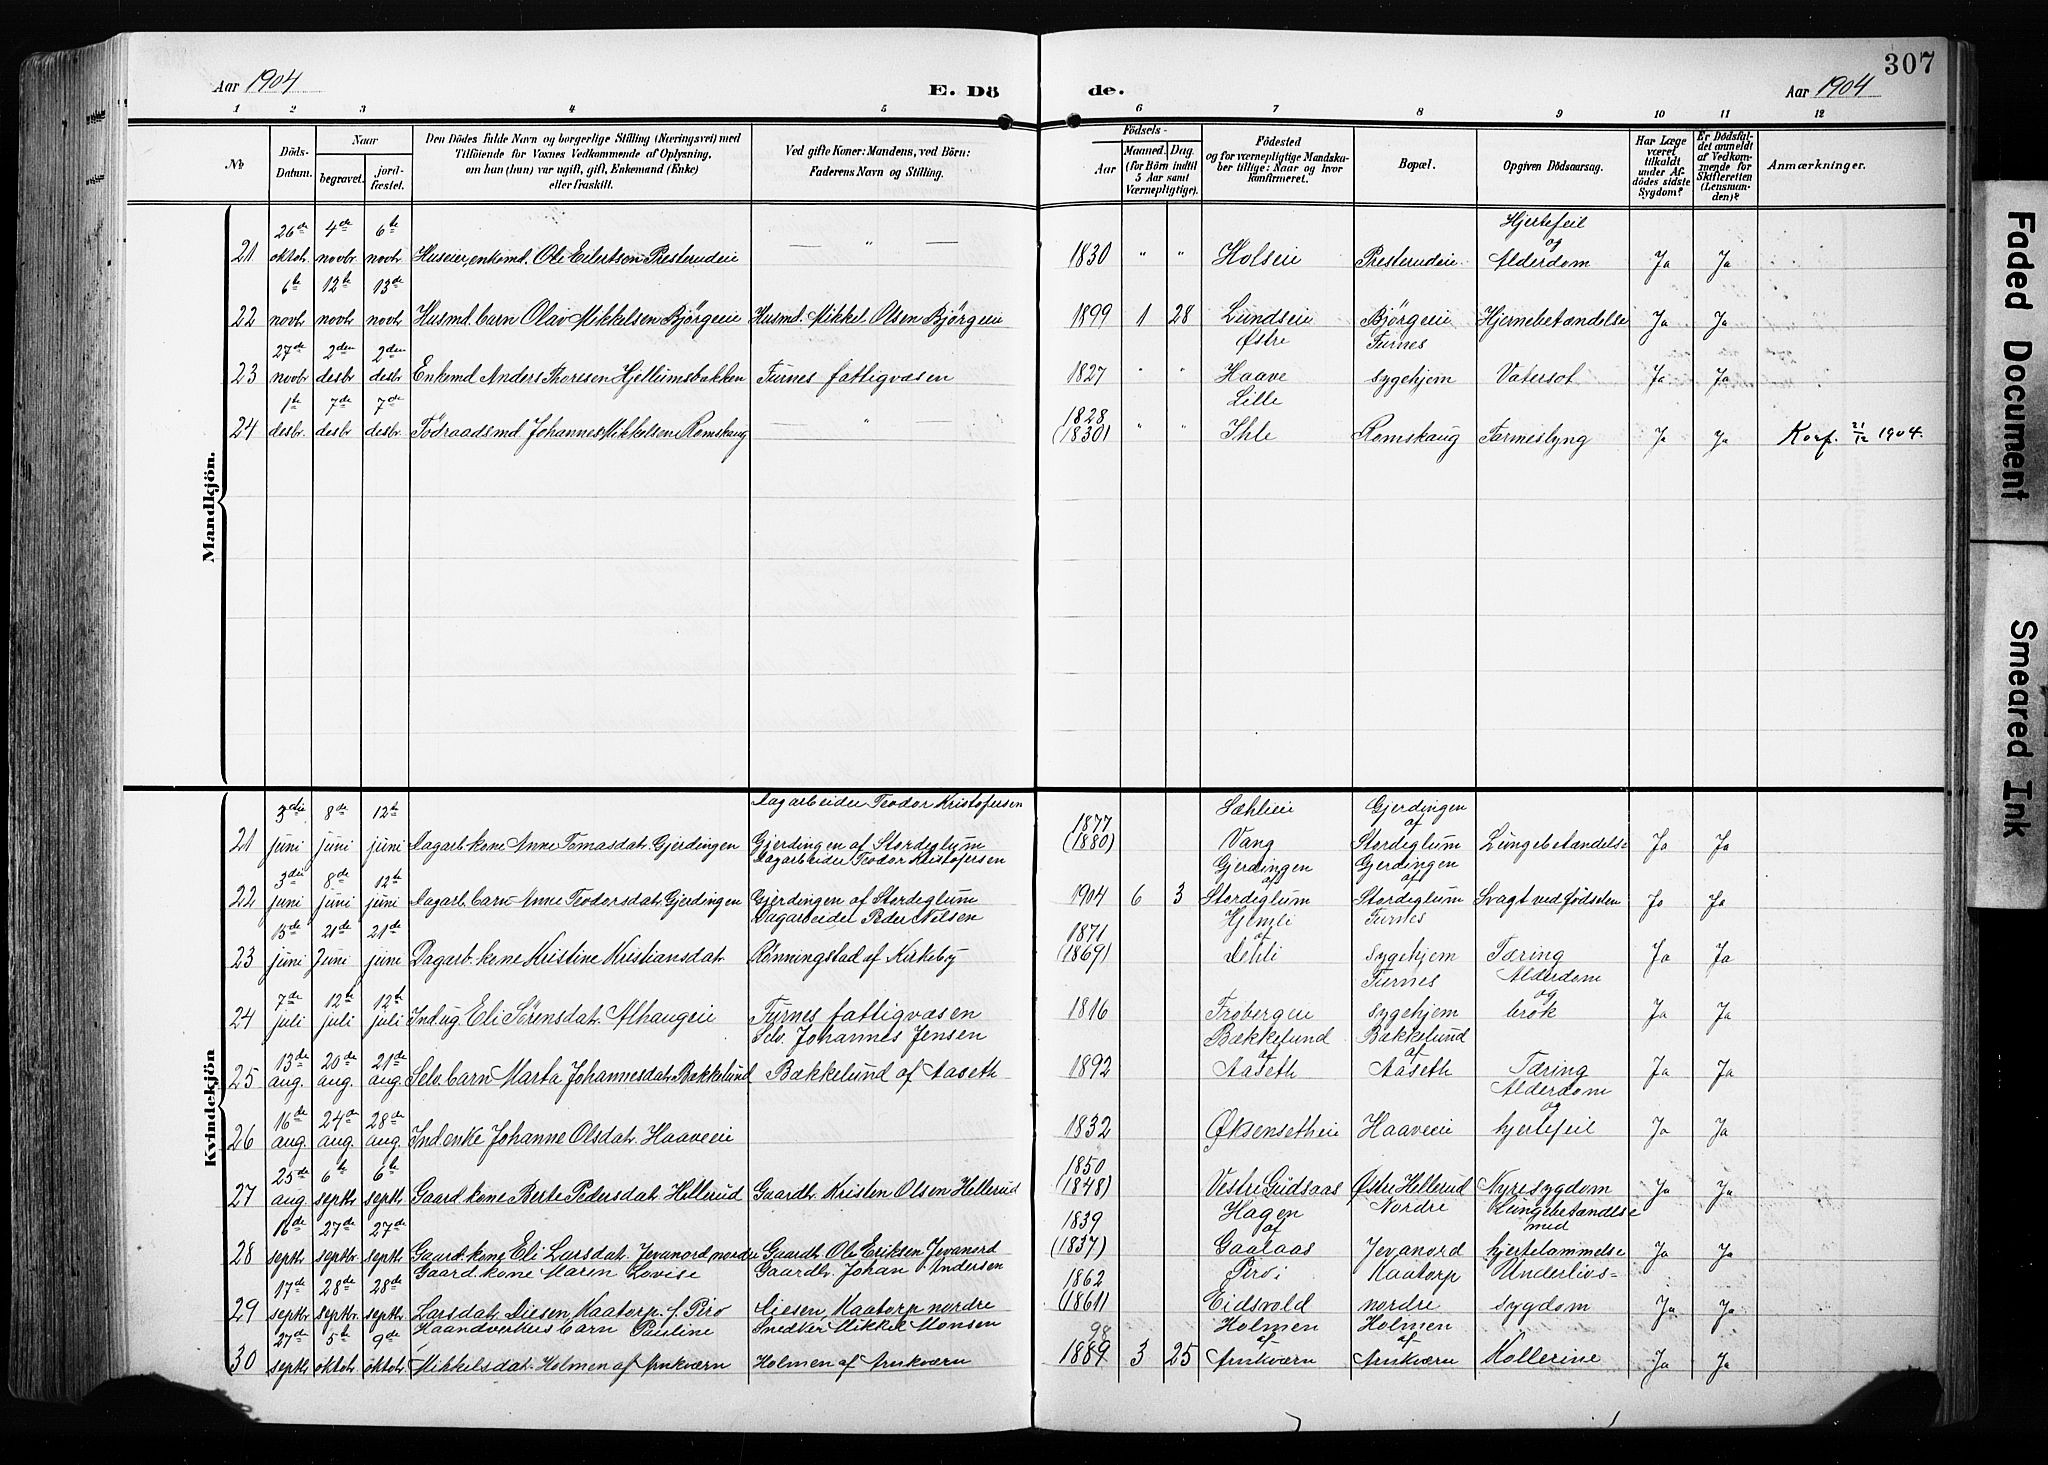 307
Aar 1904
E. Dö
de.
Aar 1904
1 2 3 4 5 6 7 8 9 10 11 12
No
Döds-Datum.
Naar
begravet.
jord-fæstet.
Den Dödes fulde Navn og borgerlige Stilling (Næringsvei) med
Tilföiende for Voxnes Vedkommende af Oplysning,
om han (hun) var ugift, gift, Enkemand (Enke)
eller fraskilt.
Ved gifte Koner: Mandens, ved Börn:
Faderens Navn og Stilling.
Födsels-
Aar
Maaned. Dag.
(for Börn indtil
5 Aar samt
Værnepligtige).
Födested
og for værnepligtige Mandska-
ber tillige: Naar og hvor
konfirmeret.
Bopæl.
Opgiven Dödsaarsag.
Har Læge
været
tilkaldt
under Af-
dödes sidste
Sygdom?
Er Dödsfal-
det anmeldt
af Vedkom-
mende for
Skifteretten
(Lensman-
den)?
Anmærkninger.
Mandkjön.
21 26de oktob. 4de novbr 6te novbr. Huseier, enkemd. Ole Eilertsen Presterudeie — " — 1830 " " Holseie Presterudeie. Hjertefeil og Alderdom Ja Ja
22 6te novb. 12te novbr 13de novbr Husmd. barn Olav Mikkelsen Bjørgeeie Husmd. Mikkel Olsen Bjørgeeie 1899 1 28 Lundseie Bjørgeeie Hjernebetændelse Ja Ja
23 27de novbr 2den desbr 2den desbr. Enkemd Anders Thoresen Hjellumsbakken Furnes fattigvæsen 1827 " " Østre Haave Furnes sygehjem Vatersot Ja Ja
24 1ste desbr. 7de desbr 7de desbr. Födraadsmd. Johannes Mikkelsen Romskaug — " — 1828 (1830) " " Lille Ihle Romskaug Tarmeslyng Ja Ja Konf. 21/12 1904.
Kvindekjön
21 3die juni 8de juni 12te juni Dagarb. kone Anne Tomasdat. Gjerdingen Dagarbeider Teodor Kristofersen Gjerdingen af Stordeglum 1877 (1880) Sæhlieie Vang Gjerdingen af Stordeglum Lungebetændelse Ja Ja
22 3die juni 8de juni 12te juni Dagarb. barn Anne Teodorsdat. Gjerdingen Dagarbeider Teodor Kristofersen Gjerdingen af Stordeglum 1904 6 3 Gjerdingen af Stordeglum Gjerdingen af Stordeglum Svagt ved fødselen Ja Ja
23 13de juni 21de Juni 21de juni Dagarb. kone Kristine Kristiansdat. Dagarbeider Peder Nilsen Rønningstad af Kirkeby 1871 (1869) Hjemli af Dehli Furnes sygehjem Tæring Ja Ja
24 7de juli 12te juli 12te juli Ind. ug. Eli Sørensdat. Alhaugeie Furnes fattigvæsen 1816 Frøbergeie Furnes sygehjem Alderdom og brok Ja Ja
25 13de aug. 20de aug. 21de aug. Selv. barn Marta Johannesdat. Bækkelund Selv. Johannes Jensen Bækkelund af Aaseth 1892 Bækkelund af Aaseth Bækkelund af Aaseth Tæring Ja Ja
26 16de aug. 24de aug. 28de aug. Ind. enke Johanne Olsdat. Haaveeie 1832 Øksensetheie Haaveeie Alderdom og hjertefeil Ja Ja
27 25de aug 6te septbr 6te septbr. Gaard. kone Berte Pedersdat. Hellerud Gaardb. Kristen Olsen Hellerud 1850 (1848) Vestre Gudsaas Østre Hellerud Nyresygdom Ja Ja
28 16de septbr 27de septbr. 27de septbr. Gaard. kone Eli Larsdat. Jevanord, nordre Gaardb. Ole Eriksen Jevanord 1839 (1837) Hagen af Gaalaas Nordre Jevanord Lungebetændelse med hjertelammelse Ja Ja
29 17de septbr 28de septbr. 28de septbr. Gaard. kone Maren Lovise Larsdat. Diesen, Kaatorp. f. Piro Gaardb. Johan Andersen Diesen, Kaatorp nordre 1862 (1861) Piro i Eidsvold Kaatorp nordre Underlivs- sygdom Ja Ja
30 27de septbr 5te oktob. 9de oktob. Haandverkers barn Pauline Mikkelsdat. Holmen af Arnkværn Snedker Mikkel Monsen Holmen af Arnkværn 98 1889 3 25 Holmen af Arnkværn Holmen af Arnkværn Kollerine Ja Ja
Faded Document
Smeared Ink